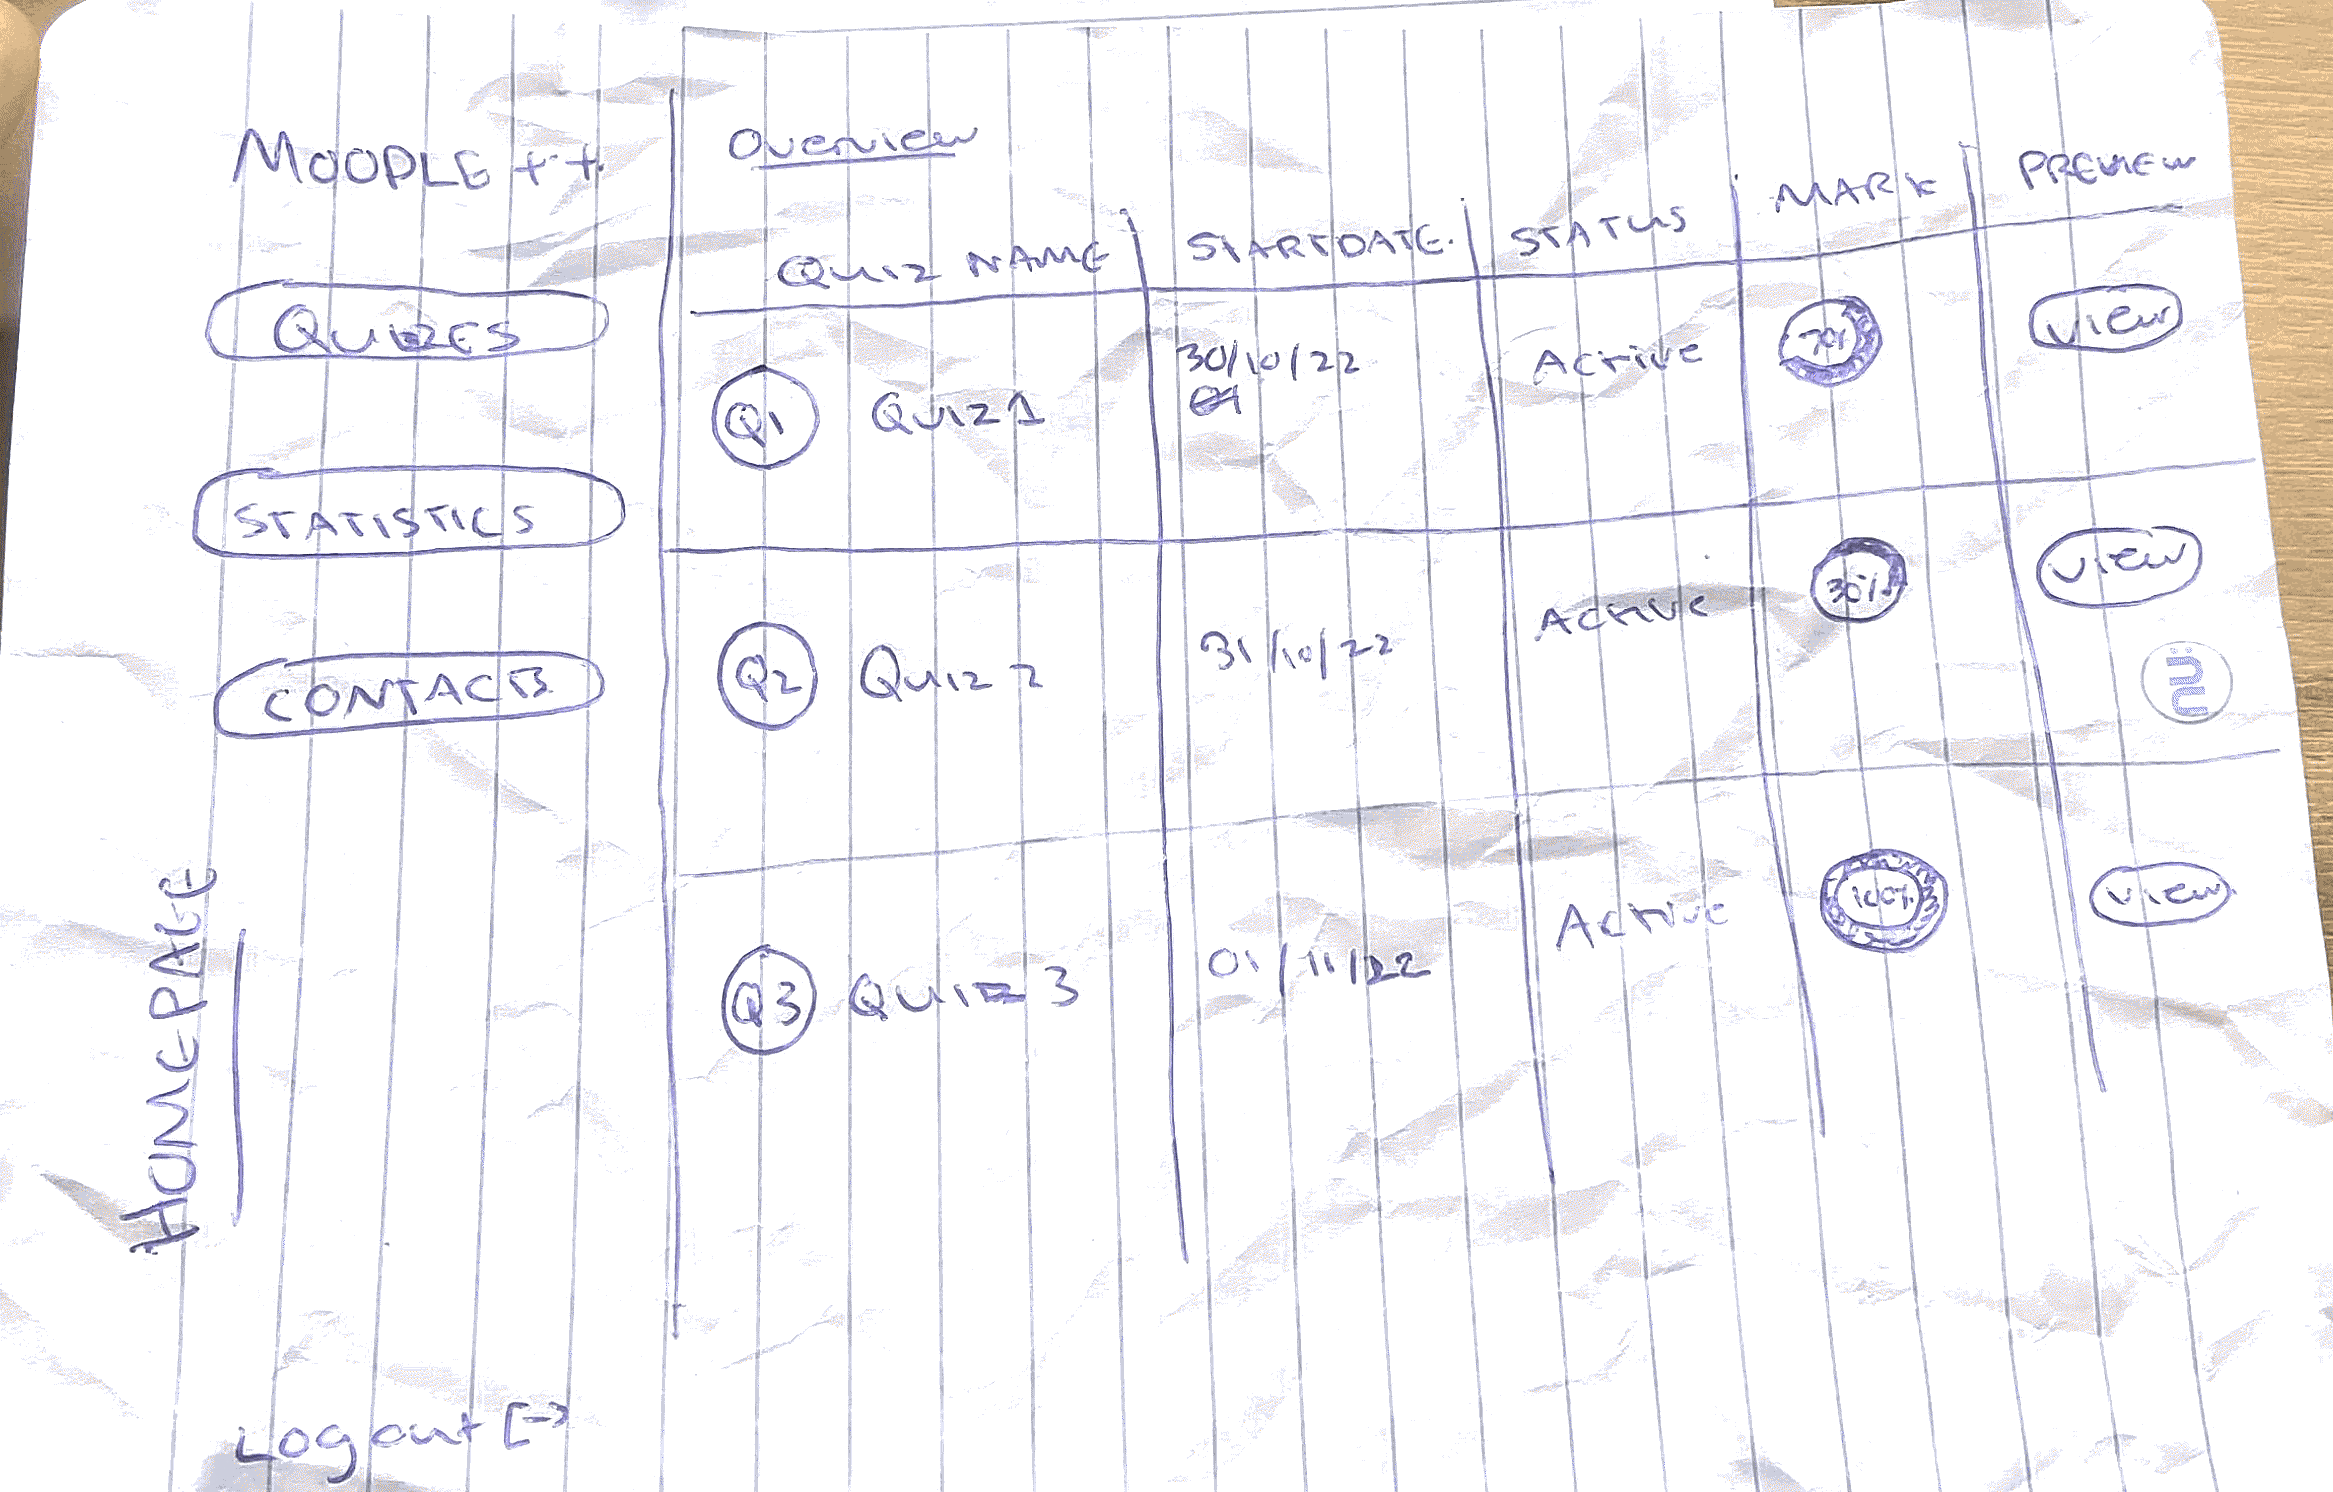 MOODLE ++
QUIZES
STATISTICS
CONTACTS
HOMEPAGE
Logout [->
Overview
QUIZ NAME STARTDATE. STATUS MARK PREVIEW
Q1 QUIZ 1 30/10/22 Active 70% View
Q2 QUIZ 2 31/10/22 Active 30% View
Q3 QUIZ 3 01/11/22 Active 100% View